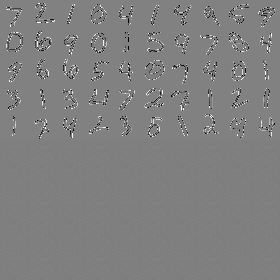 7 2 1 0 4 1 4 9 5 9
0 6 9 0 1 5 9 7 3 4
9 6 6 5 4 0 7 4 0 1
3 1 3 4 7 2 7 1 2 1
1 7 4 2 3 5 1 2 4 4